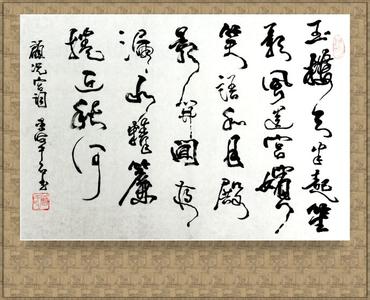 玉樓天半起笙
歌風送宮嬪
笑語和月殿
影開聞夜
漏水精簾
捲近秋河
顧況宮詞